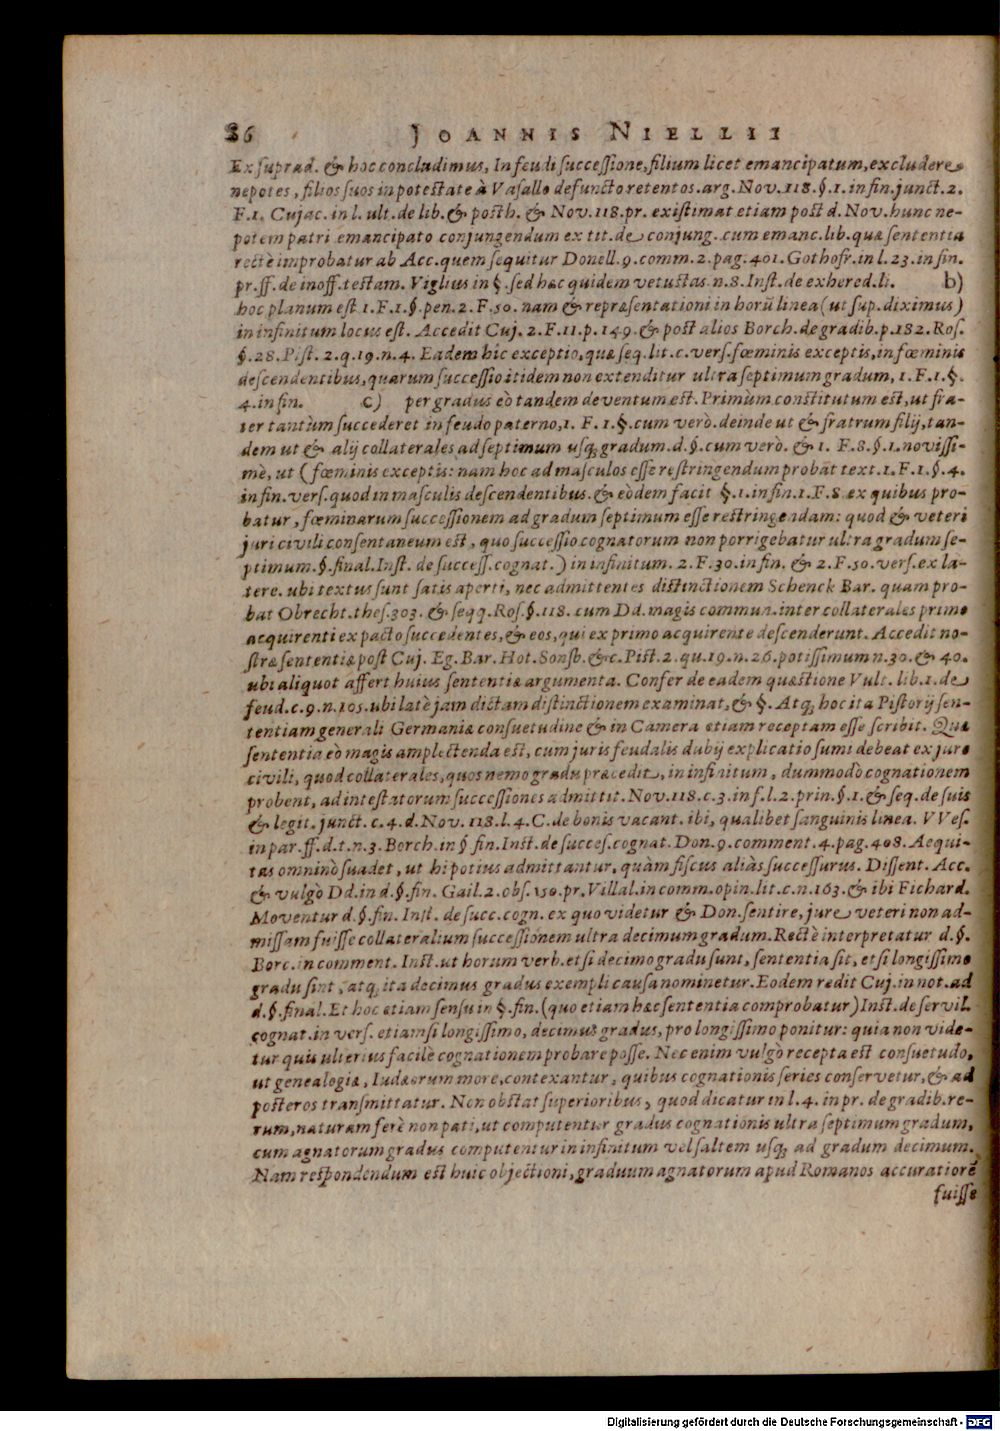 86 JOANNIS NIELLII
Ex suprad. & hoc concludimus, In feudi successione, filium licet emancipatum, excludere
nepotes, filios suos in potestate à Vasallo defuncto retentos. arg. Nov. 118. §. 1. in fin. junct. 2.
F. 1. Cujac. in l. ult. de lib. & posth. & Nov. 118. pr. existimat etiam post d. Nov. hunc ne-
potem patri emancipato conjungendum ex tit. de conjung. cum emanc. lib. quæ sententia
rectè improbatur ab Acc. quem sequitur Donell. 9. comm. 2. pag. 401. Gothofr. in l. 23. in fin.
pr. ff. de inoff. testam. Viglius in §. sed hæc quidem vetustas. n. 8. Inst. de exhered. li. b)
hoc planum est 1. F. 1. §. pen. 2. F. 50. nam & repræsentationi in horũ linea (ut sup. diximus)
in infinitum locus est. Accedit Cuj. 2. F. 11. p. 149. & post alios Borch. de gradib. p. 182. Ros.
§. 28. Pist. 2. q. 19. n. 4. Eadem hic exceptio, quæ seq. lit. c. vers. fœminis exceptis, in fœminis
descendentibus, quarum successio itidem non extenditur ultra septimum gradum, 1. F. 1. §.
4. in fin. c) per gradus eò tandem deventum est. Primùm constitutum est, ut fra-
ter tantùm succederet in feudo paterno, 1. F. 1. §. cum verò. deinde ut & fratrum filij, tan-
dem ut & alij collaterales ad septimum usq; gradum. d. §. cum verò. & 1. F. 8. §. 1. novissi-
mè, ut (fœminis exceptis: nam hoc ad masculos esse restringendum probãt text. 1. F. 1. §. 4.
in fin. vers. quod in masculis descendentibus. & eòdem facit §. 1. in fin. 1. F. 8 ex quibus pro-
batur, fœminarum successionem ad gradum septimum esse restringendam: quod & veteri
juri civili consentaneum est, quo successio cognatorum non porrigebatur ultra gradum se-
ptimum. §. final. Inst. de success. cognat.) in infinitum. 2. F. 30. in fin. & 2. F. 50. vers. ex la-
tere. ubi textus sunt satis aperti, nec admittentes distinctionem Schenck Bar. quam pro-
bat Obrecht. thes. 303. & seqq. Ros. §. 118. cum Dd. magis commun. inter collaterales primo
acquirenti ex pacto succedentes, & eos, qui ex primo acquirente descenderunt. Accedit no-
stræ sententiæ post Cuj. Eg. Bar. Hot. Sonsb. &c. Pist. 2. qu. 19. n. 26. potissimum n. 30. & 40.
ubi aliquot affert huius sententiæ argumenta. Confer de eadem quæstione Vult. lib. 1. de
feud. c. 9. n. 105. ubi latè jam dictam distinctionem examinat, & §. Atq; hoc ita Pistorij sen-
tentiam generali Germaniæ consuetudine & in Camera etiam receptam esse scribit. Quæ
sententia eò magis amplectenda est, cum juris feudalis dubij explicatio sumi debeat ex jure
civili, quod collaterales, quos nemo gradu præcedit, in infinitum, dummodò cognationem
probent, ad intestatorum successiones admittit. Nov. 118. c. 3. in f. l. 2. prin. §. 1. & seq. de suis
& legit. junct. c. 4. d. Nov. 118. l. 4. C. de bonis vacant. ibi, qualibet sanguinis linea. VVes.
in par. ff. d. t. n. 3. Borch. in § fin. Inst. de succes. cognat. Don. 9. comment. 4. pag. 408. Aequi-
tas omninò suadet, ut hi potius admittantur, quàm fiscus aliàs successurus. Dissent. Acc.
& vulgò Dd. in d. §. fin. Gail. 2. obs. 150. pr. Villal. in comm. opin. lit. c. n. 163. & ibi Fichard.
Moventur d. §. fin. Inst. de succ. cogn. ex quo videtur & Don. sentire, jure veteri non ad-
missam fuisse collateralium successionem ultra decimum gradum. Rectè interpretatur d. §.
Borc. in comment. Inst. ut horum verb. etsi decimo gradu sunt, sententia sit, etsi longissimo
gradu sint, atq; ita decimus gradus exempli causa nominetur. Eodem redit Cuj. in not. ad
d. §. final. Et hoc etiam sensu in §. fin. (quo etiam hæc sententia comprobatur) Inst. de servil.
cognat. in vers. etiamsi longissimo, decimus gradus, pro longissimo ponitur: quia non vide-
tur quis ulterius facilè cognationem probare posse. Nec enim vulgò recepta est consuetudo,
ut genealogiæ, Iudæorum more, contexantur, quibus cognationis series conservetur, & ad
posteros transmittatur. Non obstat superioribus, quod dicatur in l. 4. in pr. de gradib. re-
rum, naturam ferè non pati, ut computentur gradus cognationis ultra septimum gradum,
cum agnatorum gradus computentur in infinitum vel saltem usq; ad gradum decimum.
Nam respondendum est huic objectioni, graduum agnatorum apud Romanos accuratiorẽ
fuisse
Digitalisierung gefördert durch die Deutsche Forschungsgemeinschaft - DFG